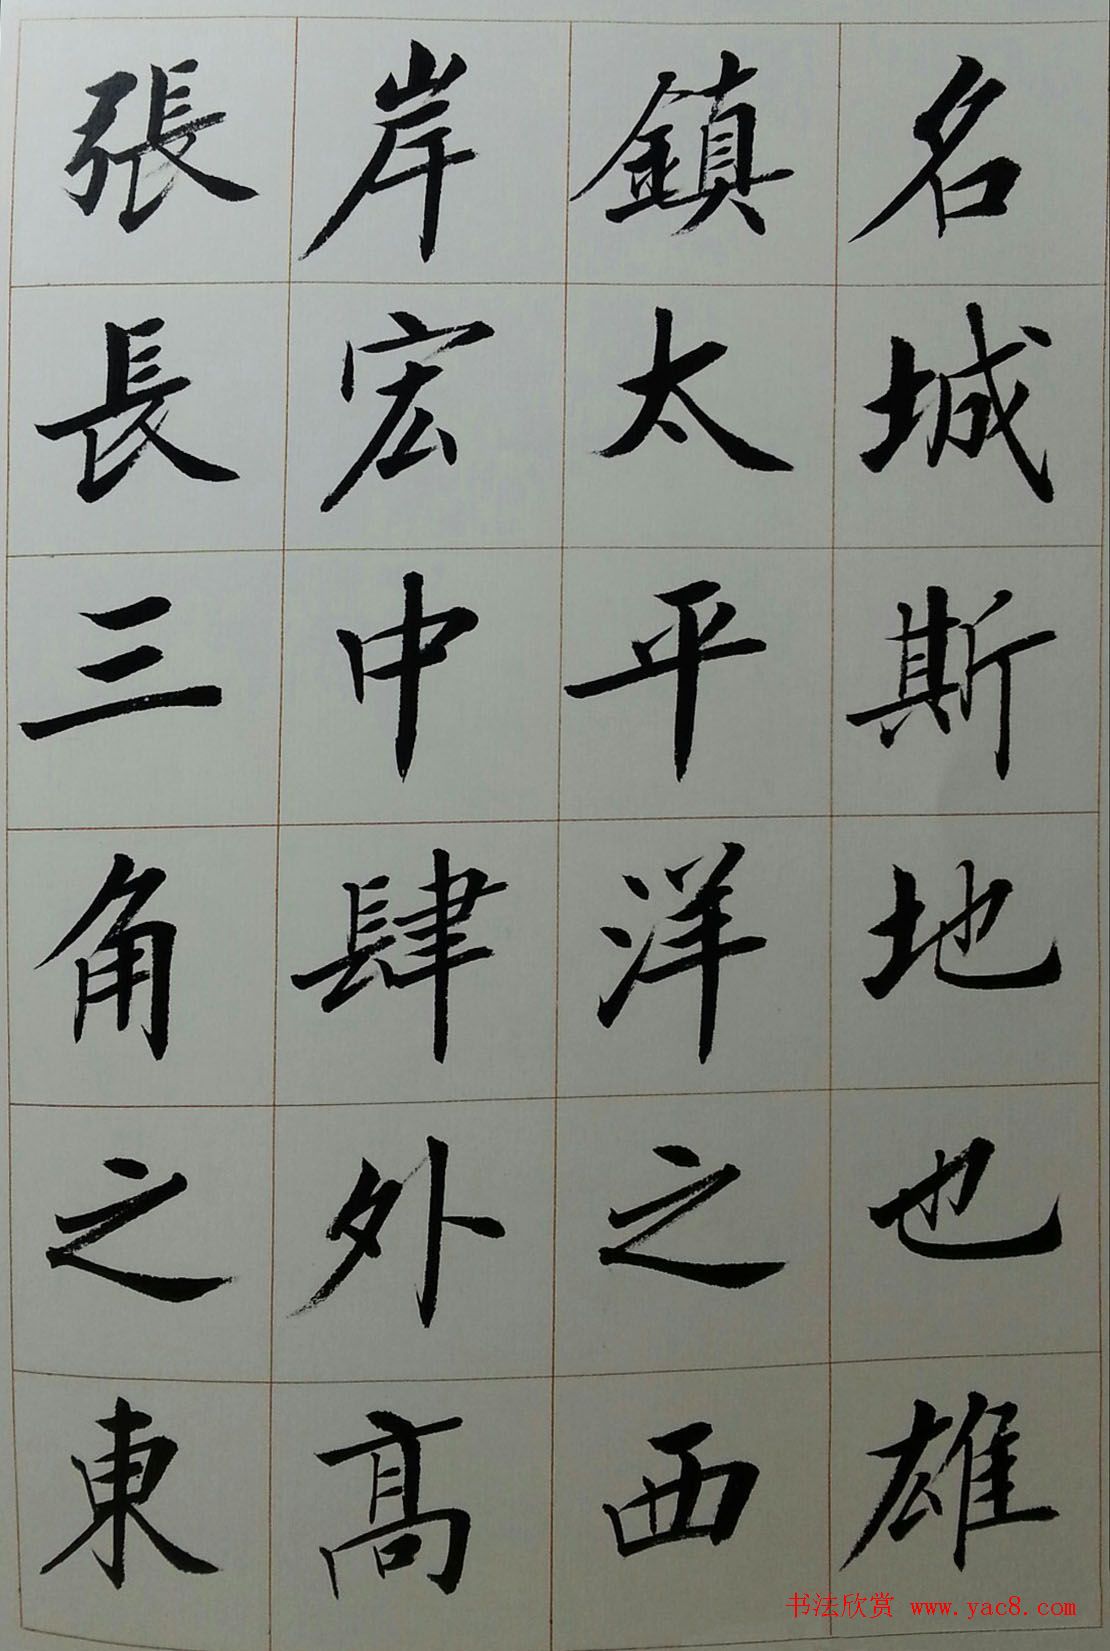 名城斯地也雄
鎮太平洋之西
岸宏中肆外高
張長三角之東
书法欣赏 www.yac8.com